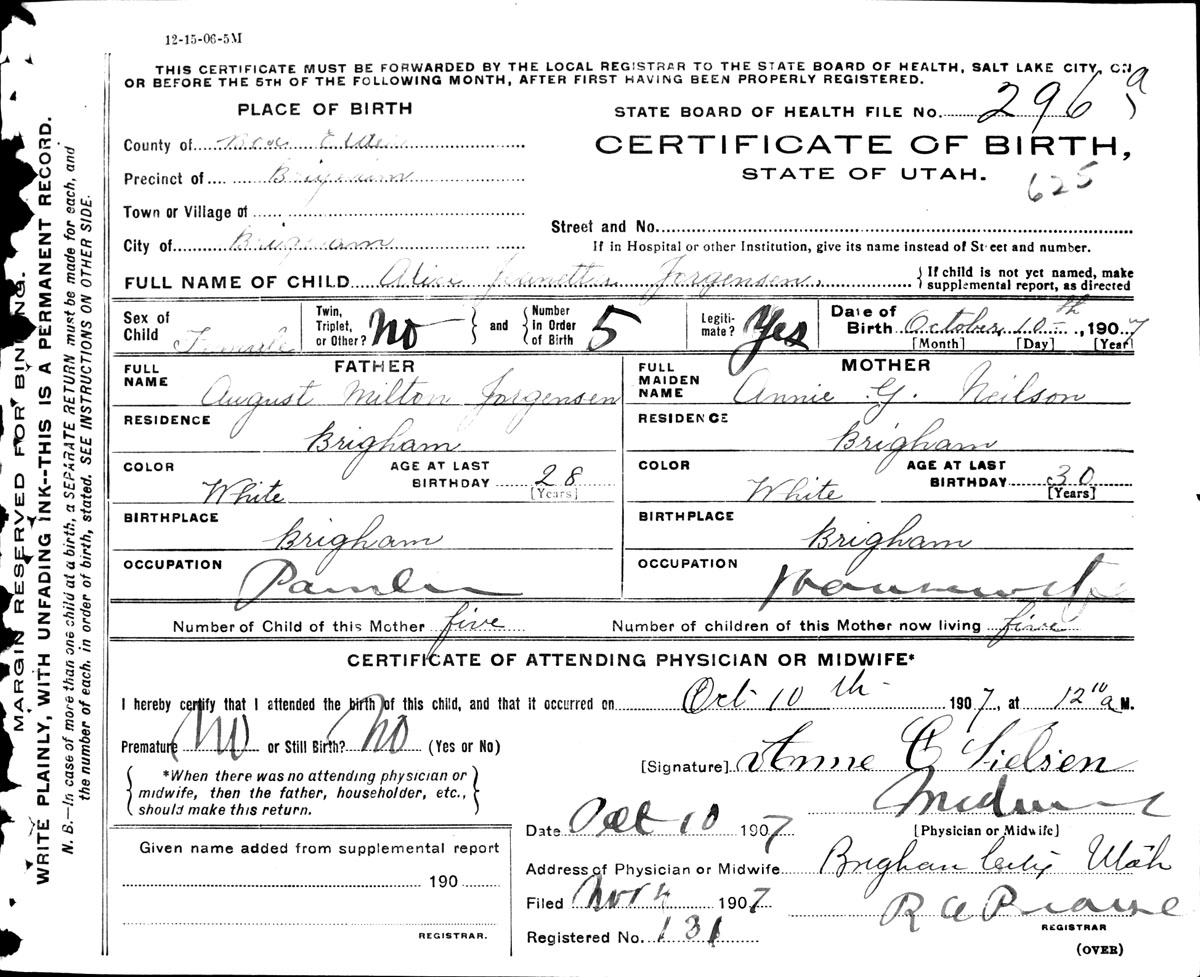 12-15-06-5M
THIS CERTIFICATE MUST BE FORWARDED BY THE LOCAL REGISTRAR TO THE STATE BOARD OF HEALTH, SALT LAKE CITY, ON
OR BEFORE THE 5TH OF THE FOLLOWING MONTH, AFTER FIRST HAVING BEEN PROPERLY REGISTERED.
PLACE OF BIRTH
STATE BOARD OF HEALTH FILE No. 296
County of Box Elder
CERTIFICATE OF BIRTH,
Precinct of Brigham
STATE OF UTAH.
625
Town or Village of
Street and No.
City of Brigham
If in Hospital or other Institution, give its name instead of Street and number.
FULL NAME OF CHILD Alice Jorgensen.
If child is not yet named, make
supplemental report, as directed
Sex of Child Female
Twin, Triplet, or Other? No
and
Number in Order of Birth 5
Legiti-mate? Yes
Date of Birth October 10th, 1907
[Month] [Day] [Year]
FATHER
FULL NAME August Milton Jorgensen
RESIDENCE
Brigham
COLOR White
AGE AT LAST BIRTHDAY 28
[Years]
BIRTHPLACE
Brigham
OCCUPATION
Painter
MOTHER
FULL MAIDEN NAME Annie G. Neilson
RESIDENCE
Brigham
COLOR White
AGE AT LAST BIRTHDAY 30
[Years]
BIRTHPLACE
Brigham
OCCUPATION
Housewife
Number of Child of this Mother five
Number of children of this Mother now living five
CERTIFICATE OF ATTENDING PHYSICIAN OR MIDWIFE*
I hereby certify that I attended the birth of this child, and that it occurred on Oct 10th 1907, at 12 10 a M.
Premature No or Still Birth? No (Yes or No)
*When there was no attending physician or
midwife, then the father, householder, etc.,
should make this return.
[Signature] Anne C Nielsen
Midwife
[Physician or Midwife]
Date Oct 10 1907
Address of Physician or Midwife Brigham City Utah
Filed Nov 4 1907
REGISTRAR
Registered No. 131
(OVER)
Given name added from supplemental report
190
REGISTRAR.
MARGIN RESERVED FOR BINDING.
WRITE PLAINLY, WITH UNFADING INK--THIS IS A PERMANENT RECORD.
N. B.—In case of more than one child at a birth, a SEPARATE RETURN must be made for each, and
the number of each, in order of birth, stated. SEE INSTRUCTIONS ON OTHER SIDE.